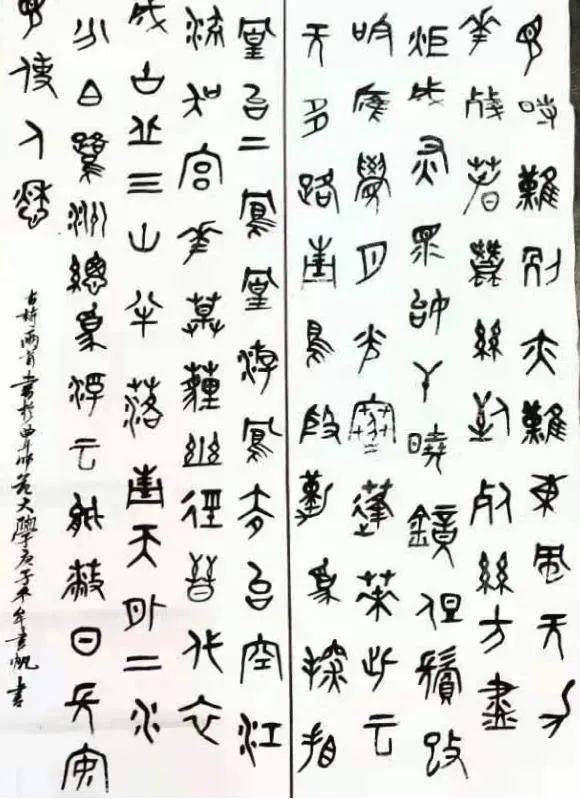 見時難別亦難東風无力
花殘春蠶絲到死絲方盡
炬成灰淚始干曉鏡但鬢改
吟應覺月光寒蓬萊此去
无多路青鳥殷勤為探看
凰台上鳳凰游鳳去台空江
流吳宮花草埋幽徑晉代衣
成古丘三山半落青天外二水
分白鷺洲總為浮云能蔽日長安
見使人愁
古詩兩首書於曲阜師范大學庚子年書